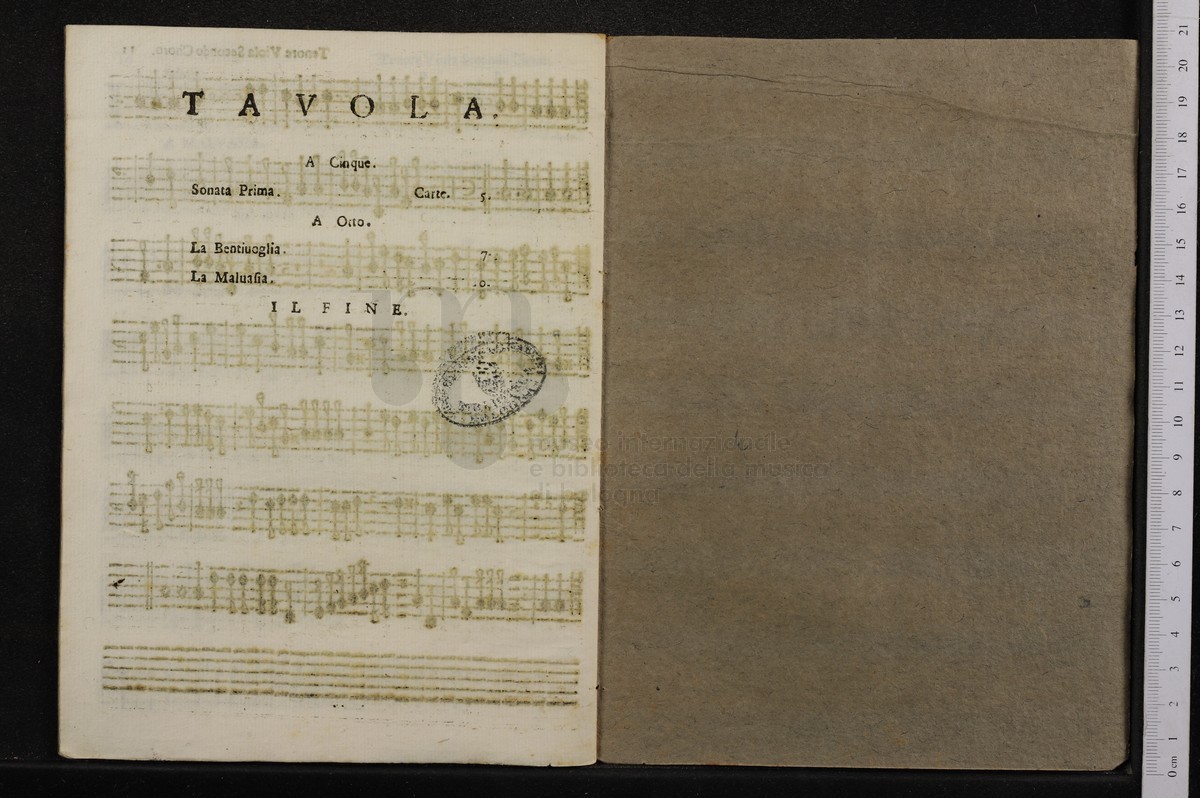 Tenore Viola Secondo Choro. 11
TAVOLA.
A Cinque.
Sonata Prima. Carte. 5.
A Otto.
La Bentiuoglia. 7.
La Maluaſia. .0.
IL FINE.
museo internazionale
e biblioteca della musica
di bologna
21
20
19
18
17
16
15
14
13
12
11
10
9
8
7
6
5
4
3
2
1
0 cm